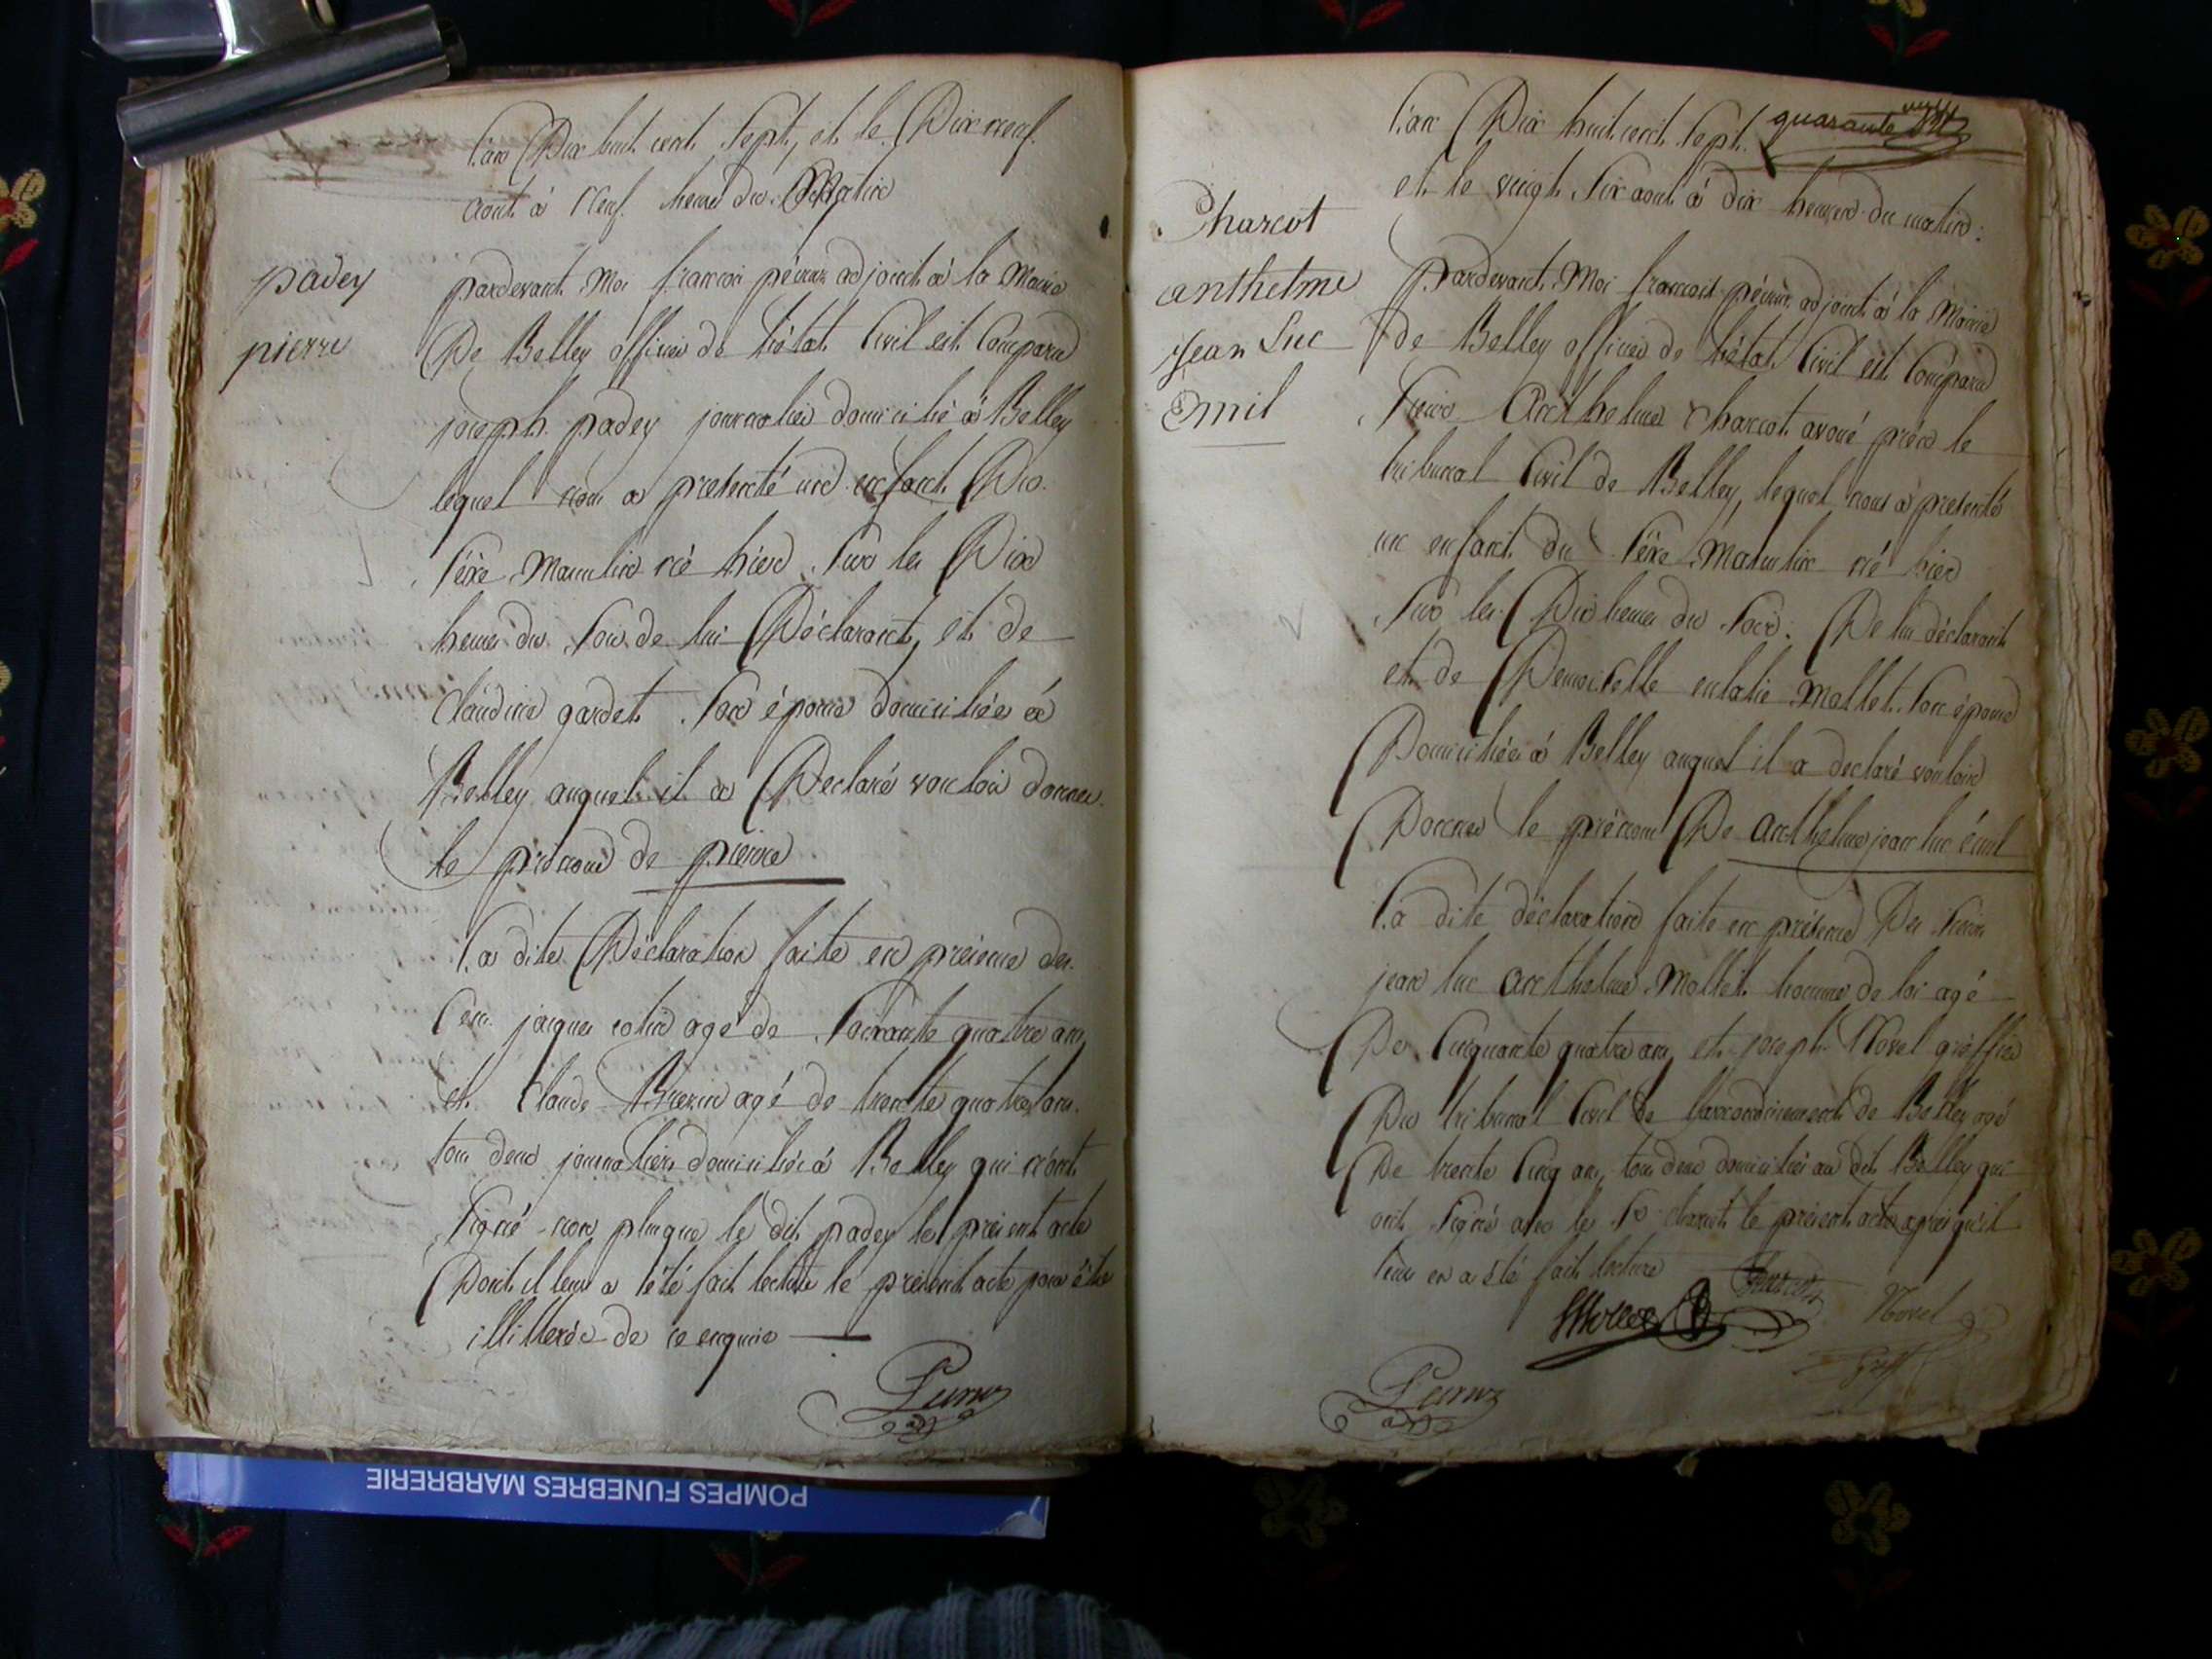 L'an Dix huit cent Sept, et le Dix neuf
aout à neuf heures du Matin
padey
pierre
pardevant Moi francois péciaux adjoint à la Mairie
De Belley officier de l'état Civil est Comparu
joseph padey journalier domicilié à Belley
lequel nous a presenté un enfant Du
Sexe Masculin né hier Sur les Dix
heures du Soir de lui Déclarant, et de
Claudine gardet Son épouse domiciliée à
Belley auquel il a Déclaré vouloir donner
le prénom de pierre
La dite Déclaration faite en présence des
jacques agé de Soixante quatre ans
et Claude agé de trente quatre ans
tous deux journaliers domiciliés à Belley qui n'ont
Signé non plus que le dit padey le présent acte
Dont il leur a été fait lecture le présent acte pour être
illitérés de ce enquis
L'an Dix huit cent Sept
quarante
et le vingt Six aout à dix heures du matin
Charcot
anthelme
Jean Luc
Emil
pardevant Moi francois adjoint à la Mairie
de Belley officier de l'état Civil est Comparu
Sieur Anthelme Charcot avoué près le
tribunal Civil de Belley, lequel nous a presenté
un enfant du Sexe Masculin né hier
Sur les Dix heures du Soir De lui déclarant
et de Demoiselle eulalie Mollet Son épouse
Domiciliée à Belley auquel il a declaré vouloir
Donner le prénom De anthelme jean luc émil
La dite déclaration faite en présence Des Sieurs
jean luc anthelme Mollet homme de loi agé
De Cinquante quatre ans et joseph Novel greffier
Du tribunal Civil de l'arrondissement de Belley agé
De trente Cinq ans tous deux domiciliés au dit Belley qui
ont Signés avec le Sr charcot le présent acte apres qu'il
leur en a été fait lecture
Charcot
Novel
POMPES FUNEBRES MARBRERIE